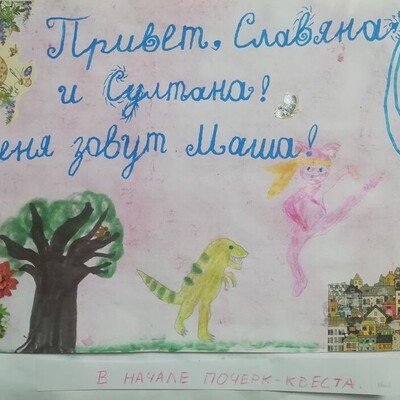 Привет, Славяна
и Султана!
еня зовут Маша!
В НАЧАЛЕ ПОЧЕРК-КВЕСТА.